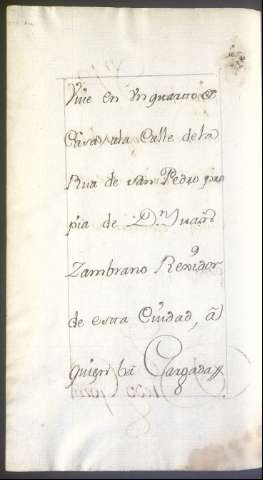 Vive en Vn quarto
Casa ala Calle dela
Rua de san Pedro pro
pia de D.ⁿ Juaⁿ
Zambrano Rexidor
de esta Ciudad, â
quien bâ Cargada